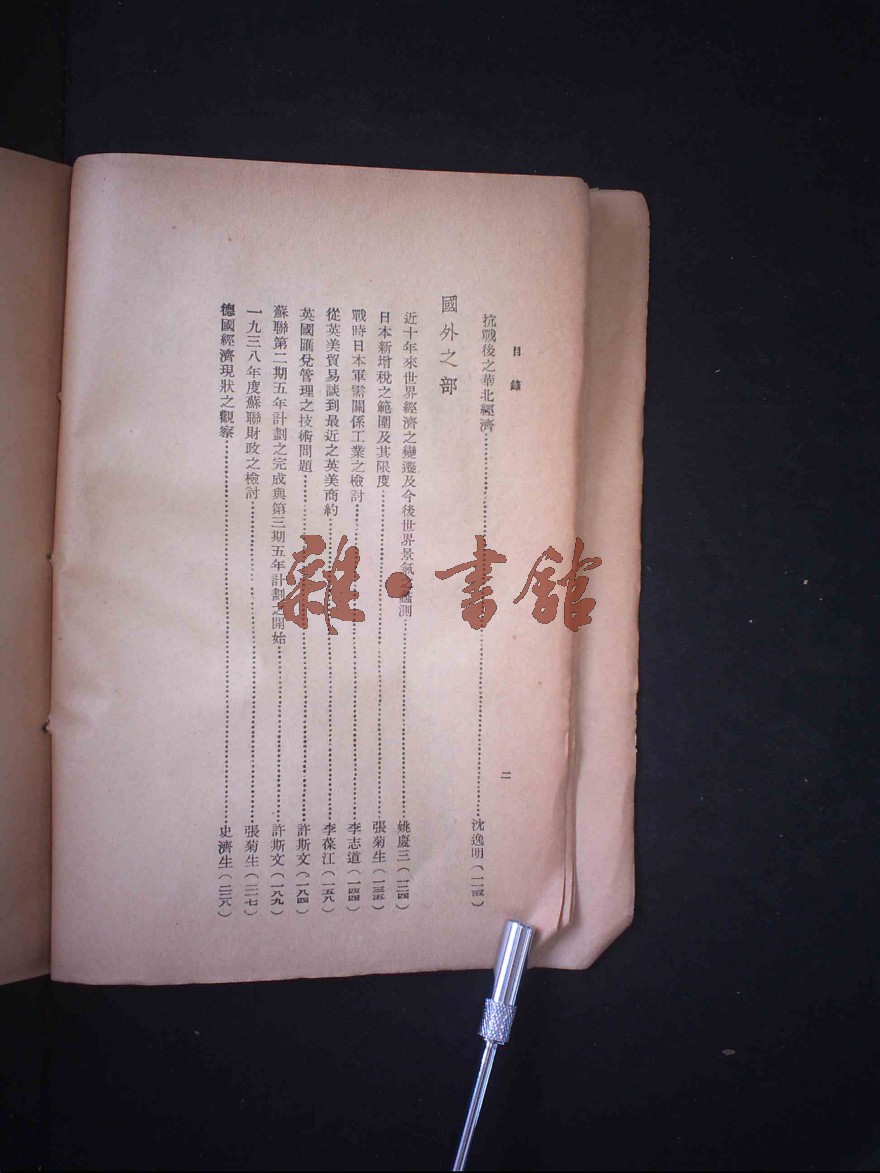 目錄
抗戰後之華北經濟……沈逸明
國外之部
近十年來世界經濟之變遷及今後世界景氣 蠡測……姚慶三(一二四)
日本新增稅之範圍及其限度……張菊生(一三五)
戰時日本軍需關係工業之檢討……李志道(一四四)
從英美貿易談到最近之英美商約……李葆江(一五八)
英國匯兌管理之技術問題……許斯文(一八四)
蘇聯第二期五年計劃之完成與第三期五年計劃之開始……許斯文(一八九)
一九三八年度蘇聯財政之檢討……張菊生
德國經濟現狀之觀察……史濟生
二
雜·書館